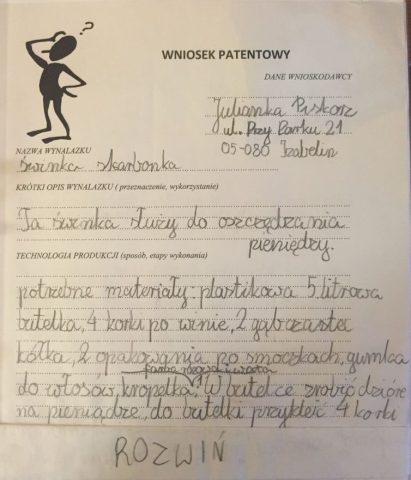 ?
WNIOSEK PATENTOWY
DANE WNIOSKODAWCY
Julianka Piskorz
ul. Przy Parku 21
05-080 Izabelin
NAZWA WYNALAZKU
Świnka skarbonka
KRÓTKI OPIS WYNALAZKU ( przeznaczenie, wykorzystanie)
Ta świnka służy do oszczędzania
pieniędzy.
TECHNOLOGIA PRODUKCJI (sposób, etapy wykonania)
potrzebne materiały: plastikowa 5 litrowa
butelka, 4 korki po winie, 2 gąbczaste
kółka, 2 opakowania po smoczkach, gumka
farba różowa i czarna
do włosów, kropelka. W butelce zrobić dziórę
na pieniądze, do butelki przykleić 4 korki
ROZWIŃ